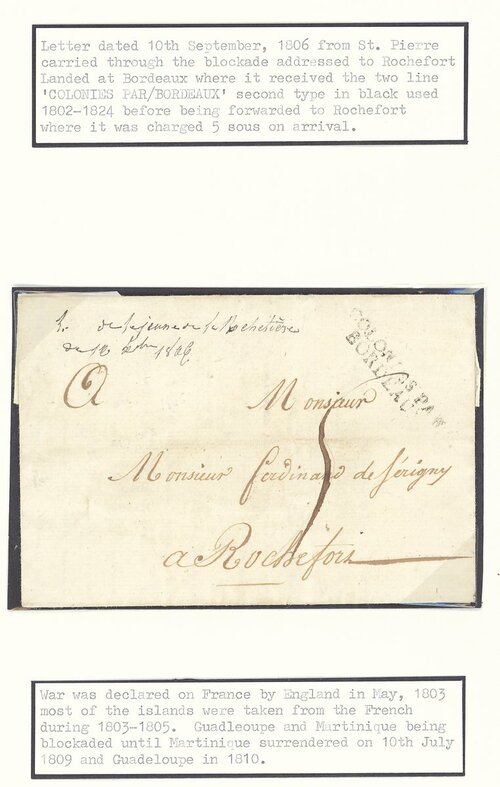 Letter dated 10th September, 1806 from St. Pierre
carried through the blockade addressed to Rochefort
Landed at Bordeaux where it received the two line
'COLONIES PAR/BORDEAUX' second type in black used
1802-1824 before being forwarded to Rochefort
where it was charged 5 sous on arrival.
de 1806
COLONIES PAR
BORDEAUX
A Monsieur
5
Monsieur ferdinand de Sérigny
a Rochefort
War was declared on France by England in May, 1803
most of the islands were taken from the French
during 1803-1805. Guadleoupe and Martinique being
blockaded until Martinique surrendered on 10th July
1809 and Guadeloupe in 1810.